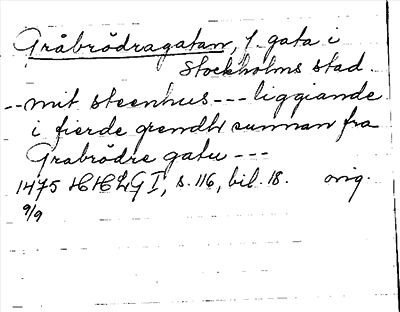 Gråbrödragatan, f. gata i
Stockholms stad.
-- mit steenhus --- liggiande
i fierde grendh sunnan fra
Grabrödre gatu ---
1475 HHLG I, s. 116, bil. 18. orig.
9/9